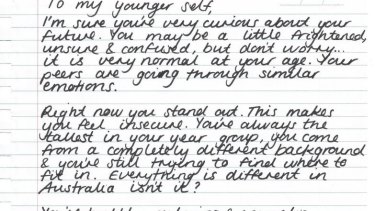 To my younger self,
I'm sure you're very curious about your
future. You may be a little frightened,
unsure & confused, but don't worry...
it is very normal at your age. Your
peers are going through similar
emotions.
Right now you stand out. This makes
you feel insecure. You're always the
tallest in your year group, you come
from a completely different background
& you're still trying to find where to
fit in. Everything is different in
Australia isn't it?